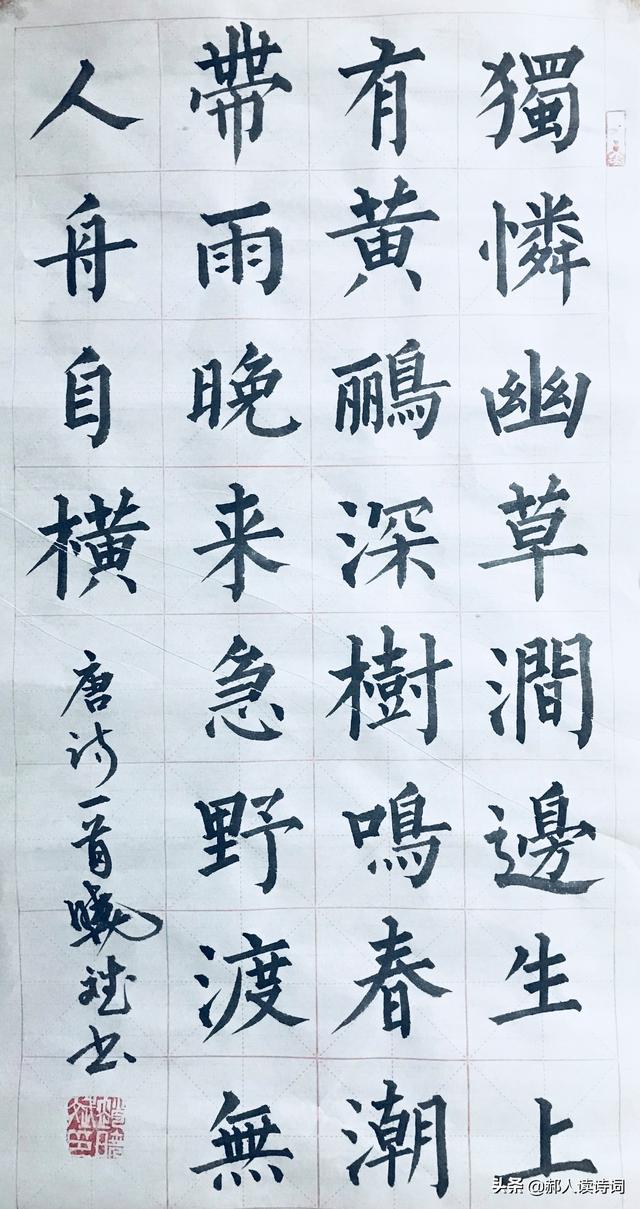 獨憐幽草澗邊生上
有黄鸝深樹鳴春潮
帶雨晚来急野渡無
人舟自横
唐诗一首曉斌书
头条 @郝人读诗词